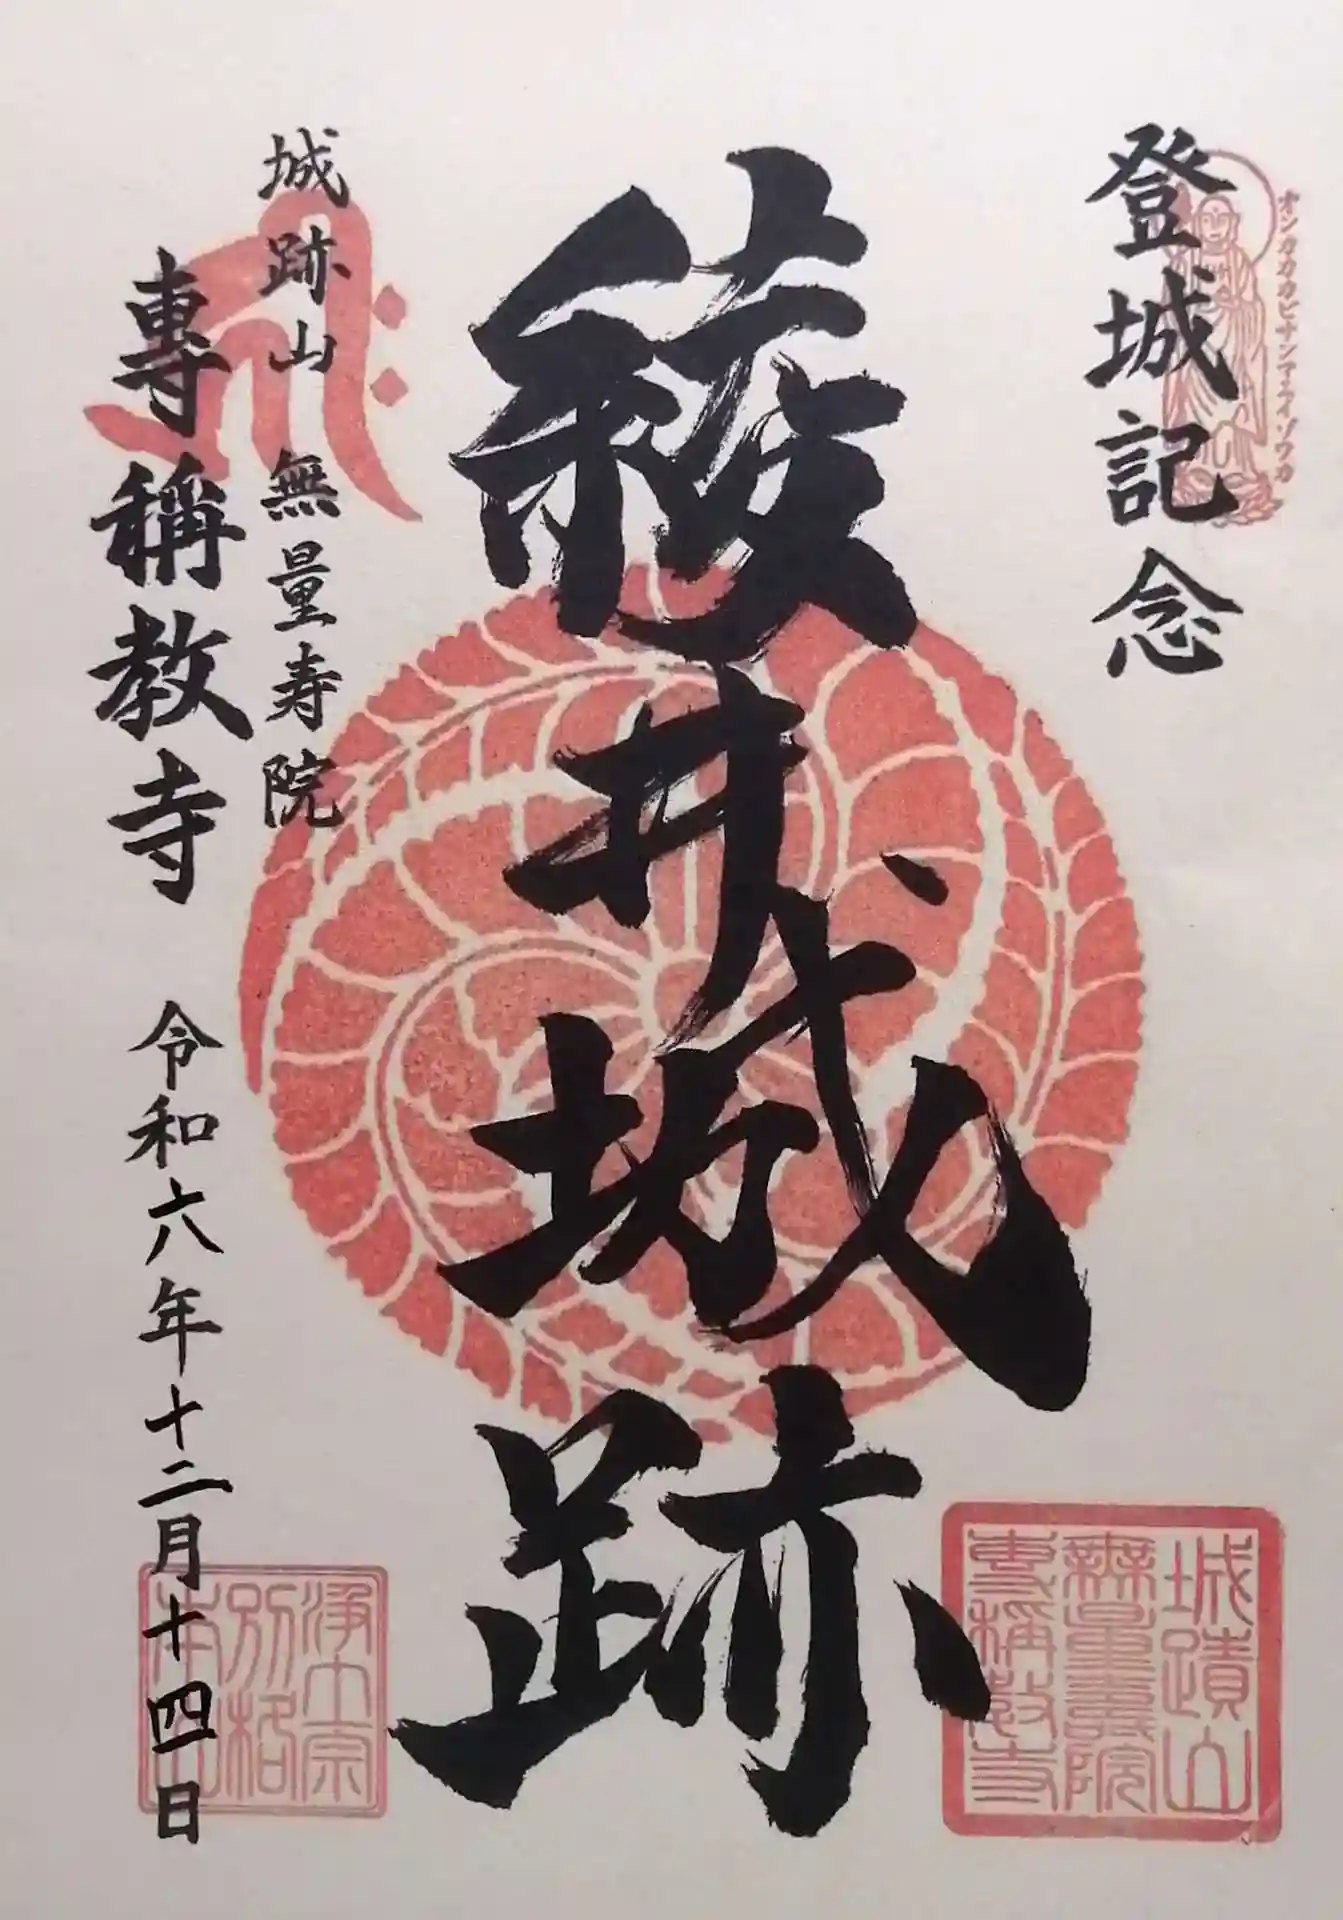 登城記念
オンカカカビサンマエイソワカ
綾井城跡
城跡山 無量寿院
專稱教寺 令和六年十二月十四日
城蹟山
無量壽院
專稱教寺
浄土宗
別格
本山